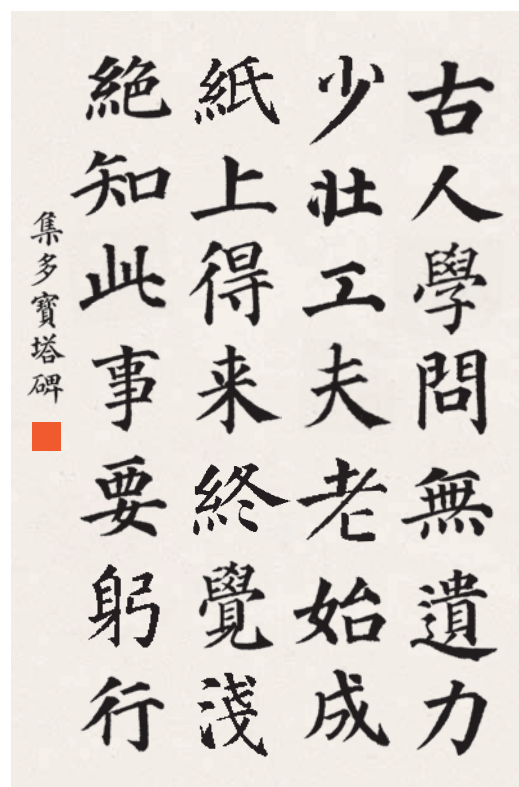 古人學問無遺力
少壯工夫老始成
紙上得来終覺淺
絕知此事要躬行
集多寶塔碑